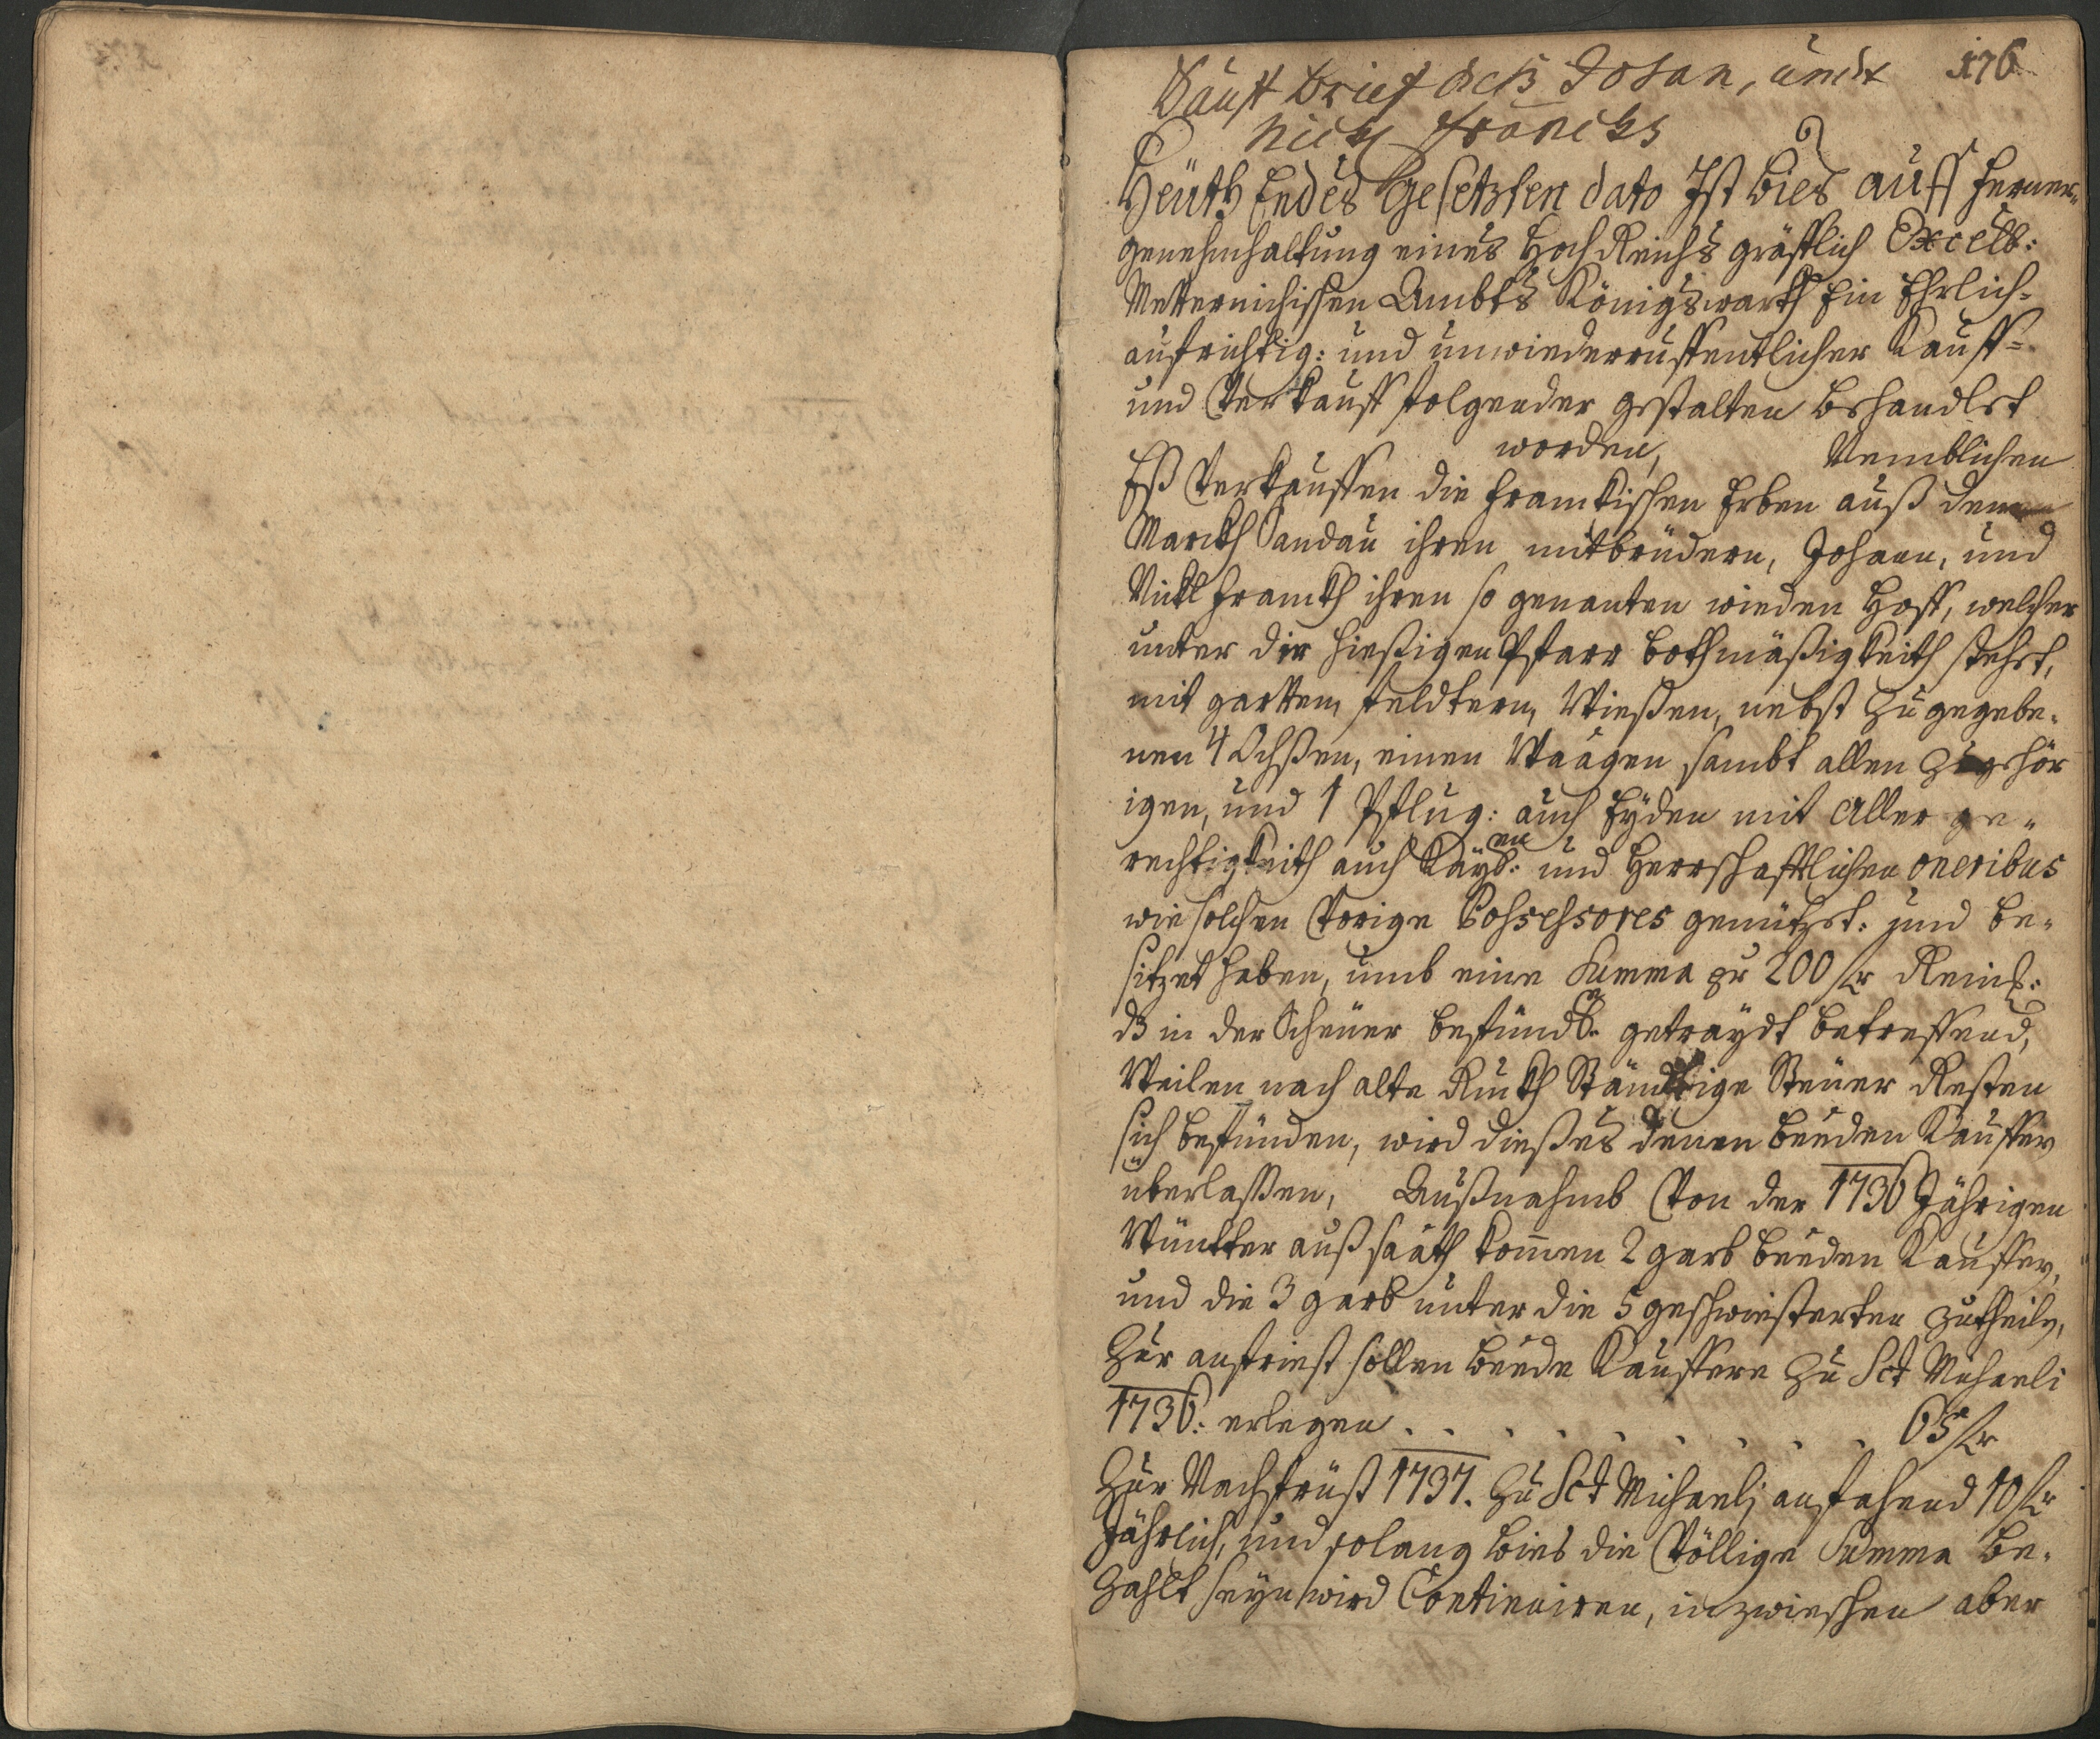 176
Kauff brief deß Johan, undt
Nickl franckhs
Heüth Endes Gesetzten dato Ist bies auff ferner,,
genehmhaltung eines Hoch Reichs gräfflich Excell:
Metternichischen Ambts Königswarth Ein Ehrlich=
aufrichtig: und unwiederruffentlicher Kauff=
und Verkauff folgender gestalten behandlet
worden, Nemblichen
Eß Verkauffen die franckischen Erben auß dem
Marckh Sandau ihren mitbrüdern, Johann, und
Nickl franckh ihren so genanten wieden Hoff, welcher
unter der hießigen Pfarr bothmäßigkeith stehet,
mit gartten, feldtern, Wießen, nebst zu gegebe,
nen 4 Ochßen, einen Waagen sambt allen zugehör
igen, und 1 Pflug: auch Eyden mit aller ge,,
rechtigkeith auch Kayl:en und Herrschafftlichen oneribus
wie solchen Vorige Possessores genützet: und be,
sitzet haben, umb eine Summa pr 200 fr Reinl:
dß in der Scheüer befündl:e getraydt betreffend,
Weilen nach alte Ruckh Ständige Steüer Resten
sich befünden, wird dießes denen beeden Kauffer
überlaßen, Außnahmb Von der 1736 Jährigen
Wüntter außsaath kommen 2 garb beeden Kauffer,
und die 3 garb unter die 5 geschwiesterten zutheiln,
Zur anfriest sollen beede Kauffere zu Sct Michaeli
1736: erlegen . . . . . . . . . 65 fr
Zur Nachfrüst 1737. zu Sct Michaeli anfahend 10 fr
Jährlich, und solang bies die Völlige Summa be,
zahlt seyn wird Continuiren, inzwieschen aber